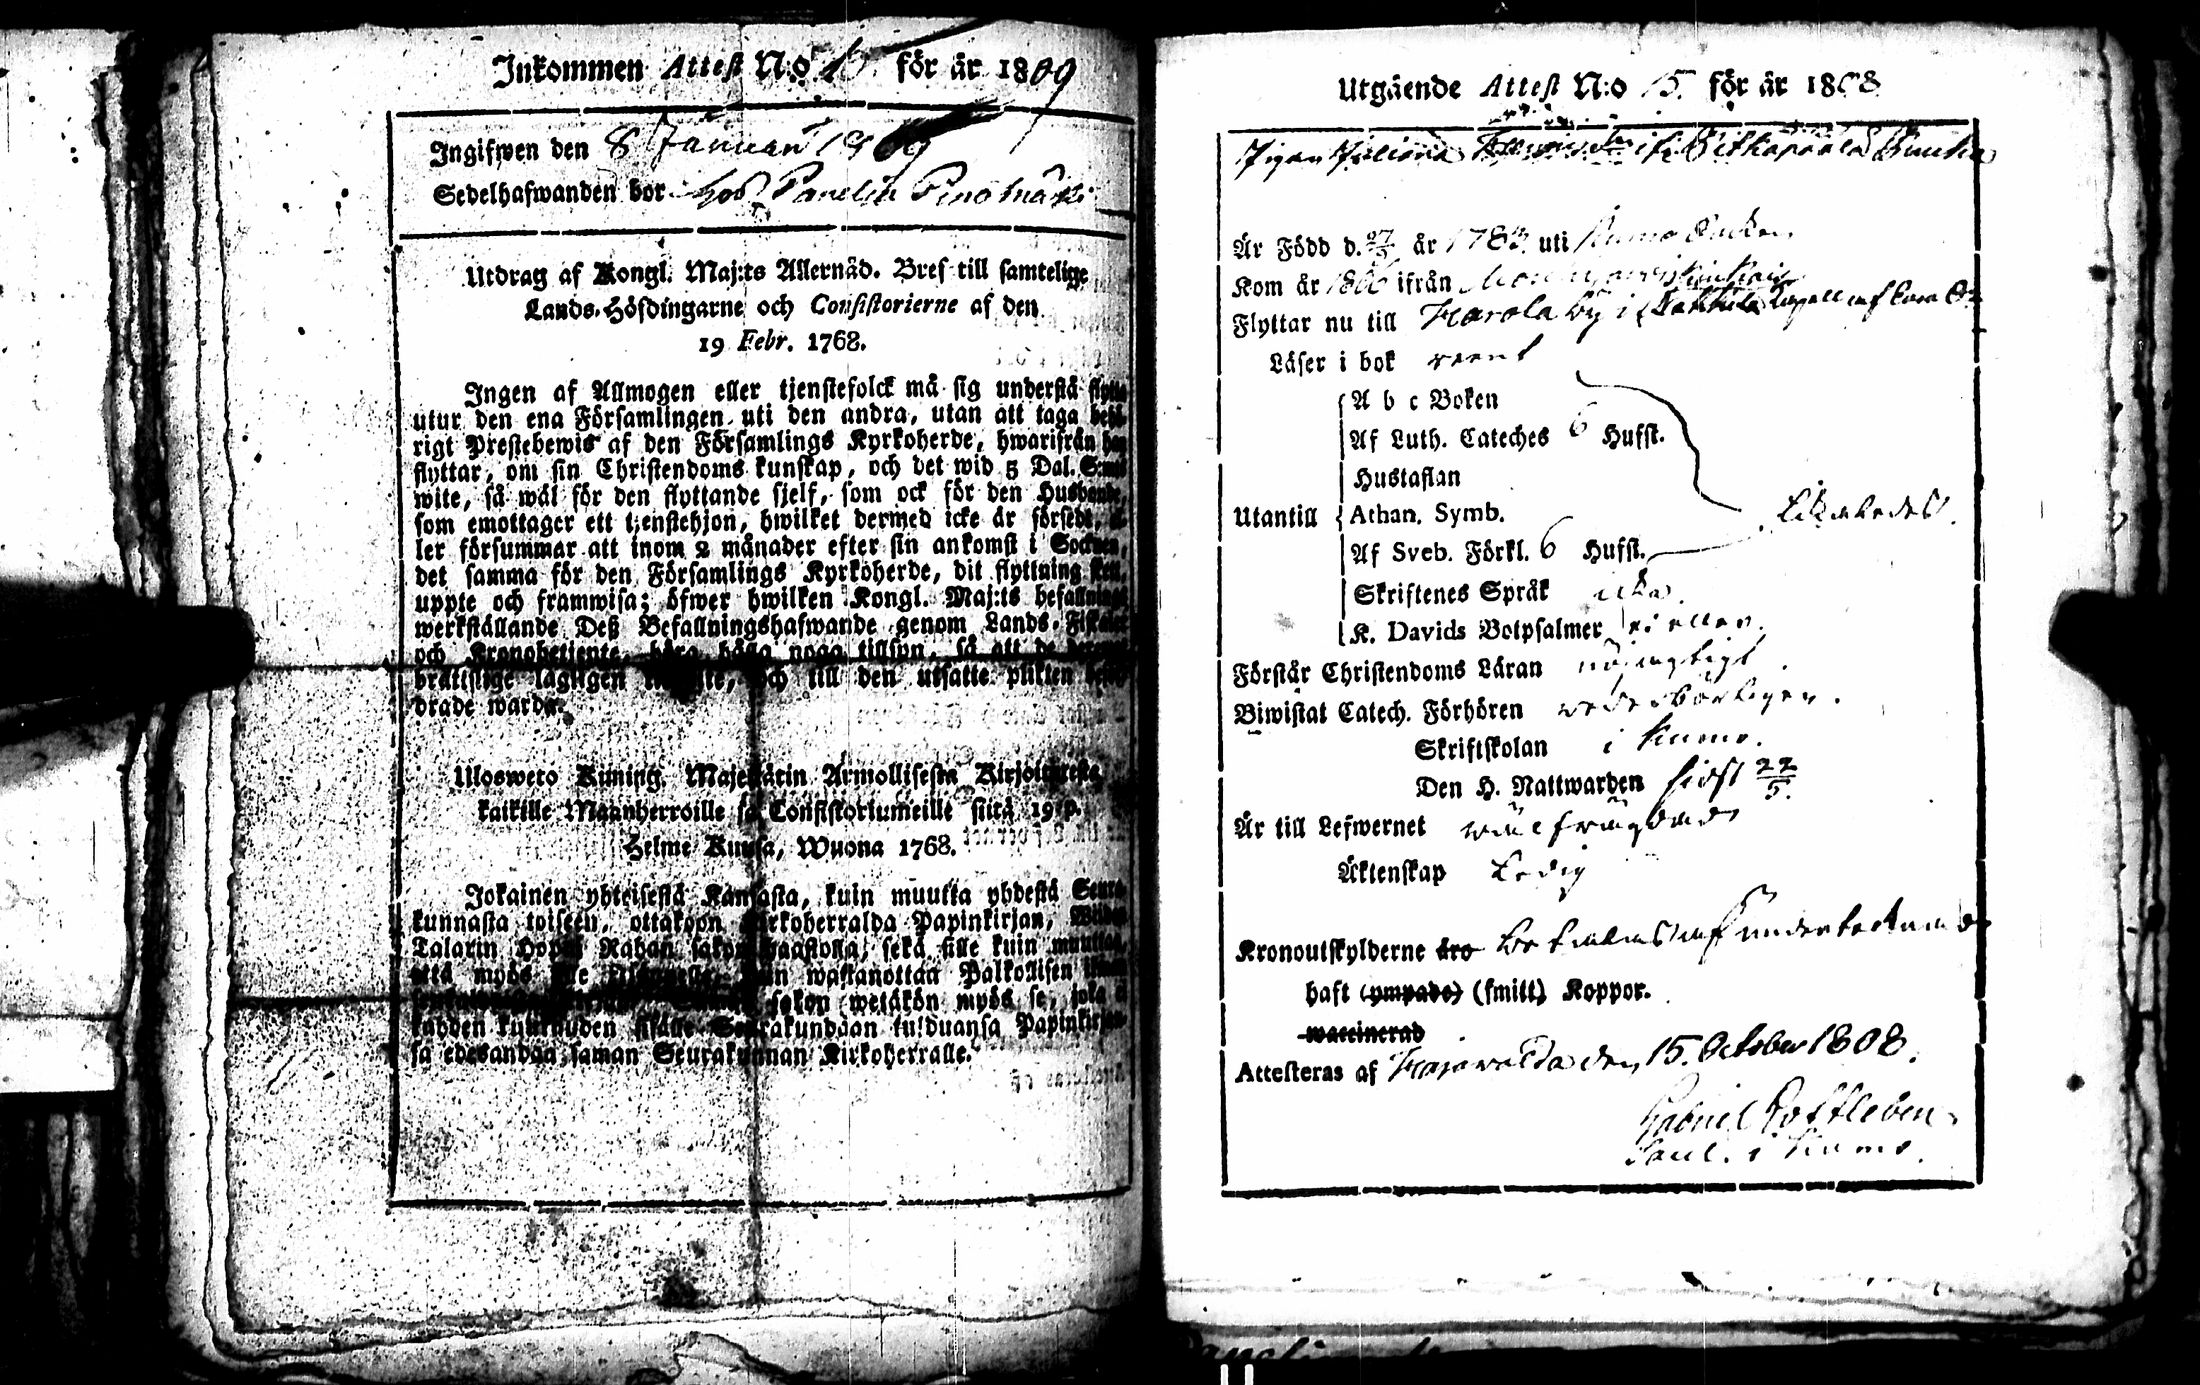 Inkommen Attest N:o för år 1809
Ingifwen den 8 Januari 1809
Sedelhafwanden bor hos Panelia
Utdrag af Kongl. Maj:ts Allernåd. Bref till samtelige
Lands-Höfdingarne och Consistorierne af den
19 Febr. 1768.
Ingen af Allmogen eller tjenstefolck må sig understå flytta
utur den ena Församlingen uti den andra, utan att taga behö-
rigt Prestebewis af den Församlings Kyrkoherde, hwarifrån han
flyttar, om sin Christendoms kunskap, och det wid 5 Dal. S:mt
wite, så wäl för den flyttande sjelf, som ock för den Husbonde,
som emottager ett tjenstehjon, hwilket dermed icke är försedt, el-
ler försummar att inom 2 månader efter sin ankomst i Socknen,
det samma för den Församlings Kyrkoherde, dit flyttning sker,
uppte och framwisa; öfwer hwilken Kongl. Maj:ts befallnings
werkställande Deß Befallningshafwande genom Lands-Fiskaler
och Kronobetjente, böra hålla noga tillsyn, så att de
bråttslige lagligen och till den utsatte plikten
drade warda.
Ulosweto Kuning. Majestätin Armollisesta Kirjoituxesta
kaikille Maanherroille ja Consistoriumeille siitä 19 p.
Helme Kuusa, Wuona 1768.
Jokainen yhteisestä Kansasta, kuin muutta yhdestä Seura-
kunnasta toiseen, ottakoon Kirkoherralda Papinkirjan, Wiiden
Talarin Hopia Rahan sakon haastolla, sekä sille kuin muuttaa,
että myös sille kuin wastanottaa Palkollisen ilman
sakon wetäkön myös se, joka ei
kahden kuukauden sisälle Seurakundaan tulduansa Papinkirjan-
sa edesandaa saman Seurakunnan Kirkoherralle.
Utgående Attest N:o 15. för år 1808
Pigan Juliana
Är Född d. 27 år 1783 uti Kumo Socken
Kom år 1806 ifrån
Flyttar nu till Harola by i capell af
Läser i bok rent
A b c Boken
Af Luth. Cateches 6 Hufst.
Hustaflan
Utantill Athan. Symb. likaledes.
Af Sveb. Förkl. 6 Hufst.
Skriftenes Språk icke.
K. Davids Botpsalmer ej eller.
Förstår Christendoms Läran nöjagtigt.
Biwistat Catech. Förhören wederbörligen.
Skriftskolan i Kumo.
Den H. Nattwarden sidst 22/5.
Är till Lefwernet wälfrägdad
Äktenskap Ledig
Kronoutskylderne äro betalas af undertecknad
haft (ympade) (smitt) Koppor.
waccinerad
Attesteras af Harjawalda den 15. October 1808.
Gabriel Rostleben
Sacel. i Kumo.